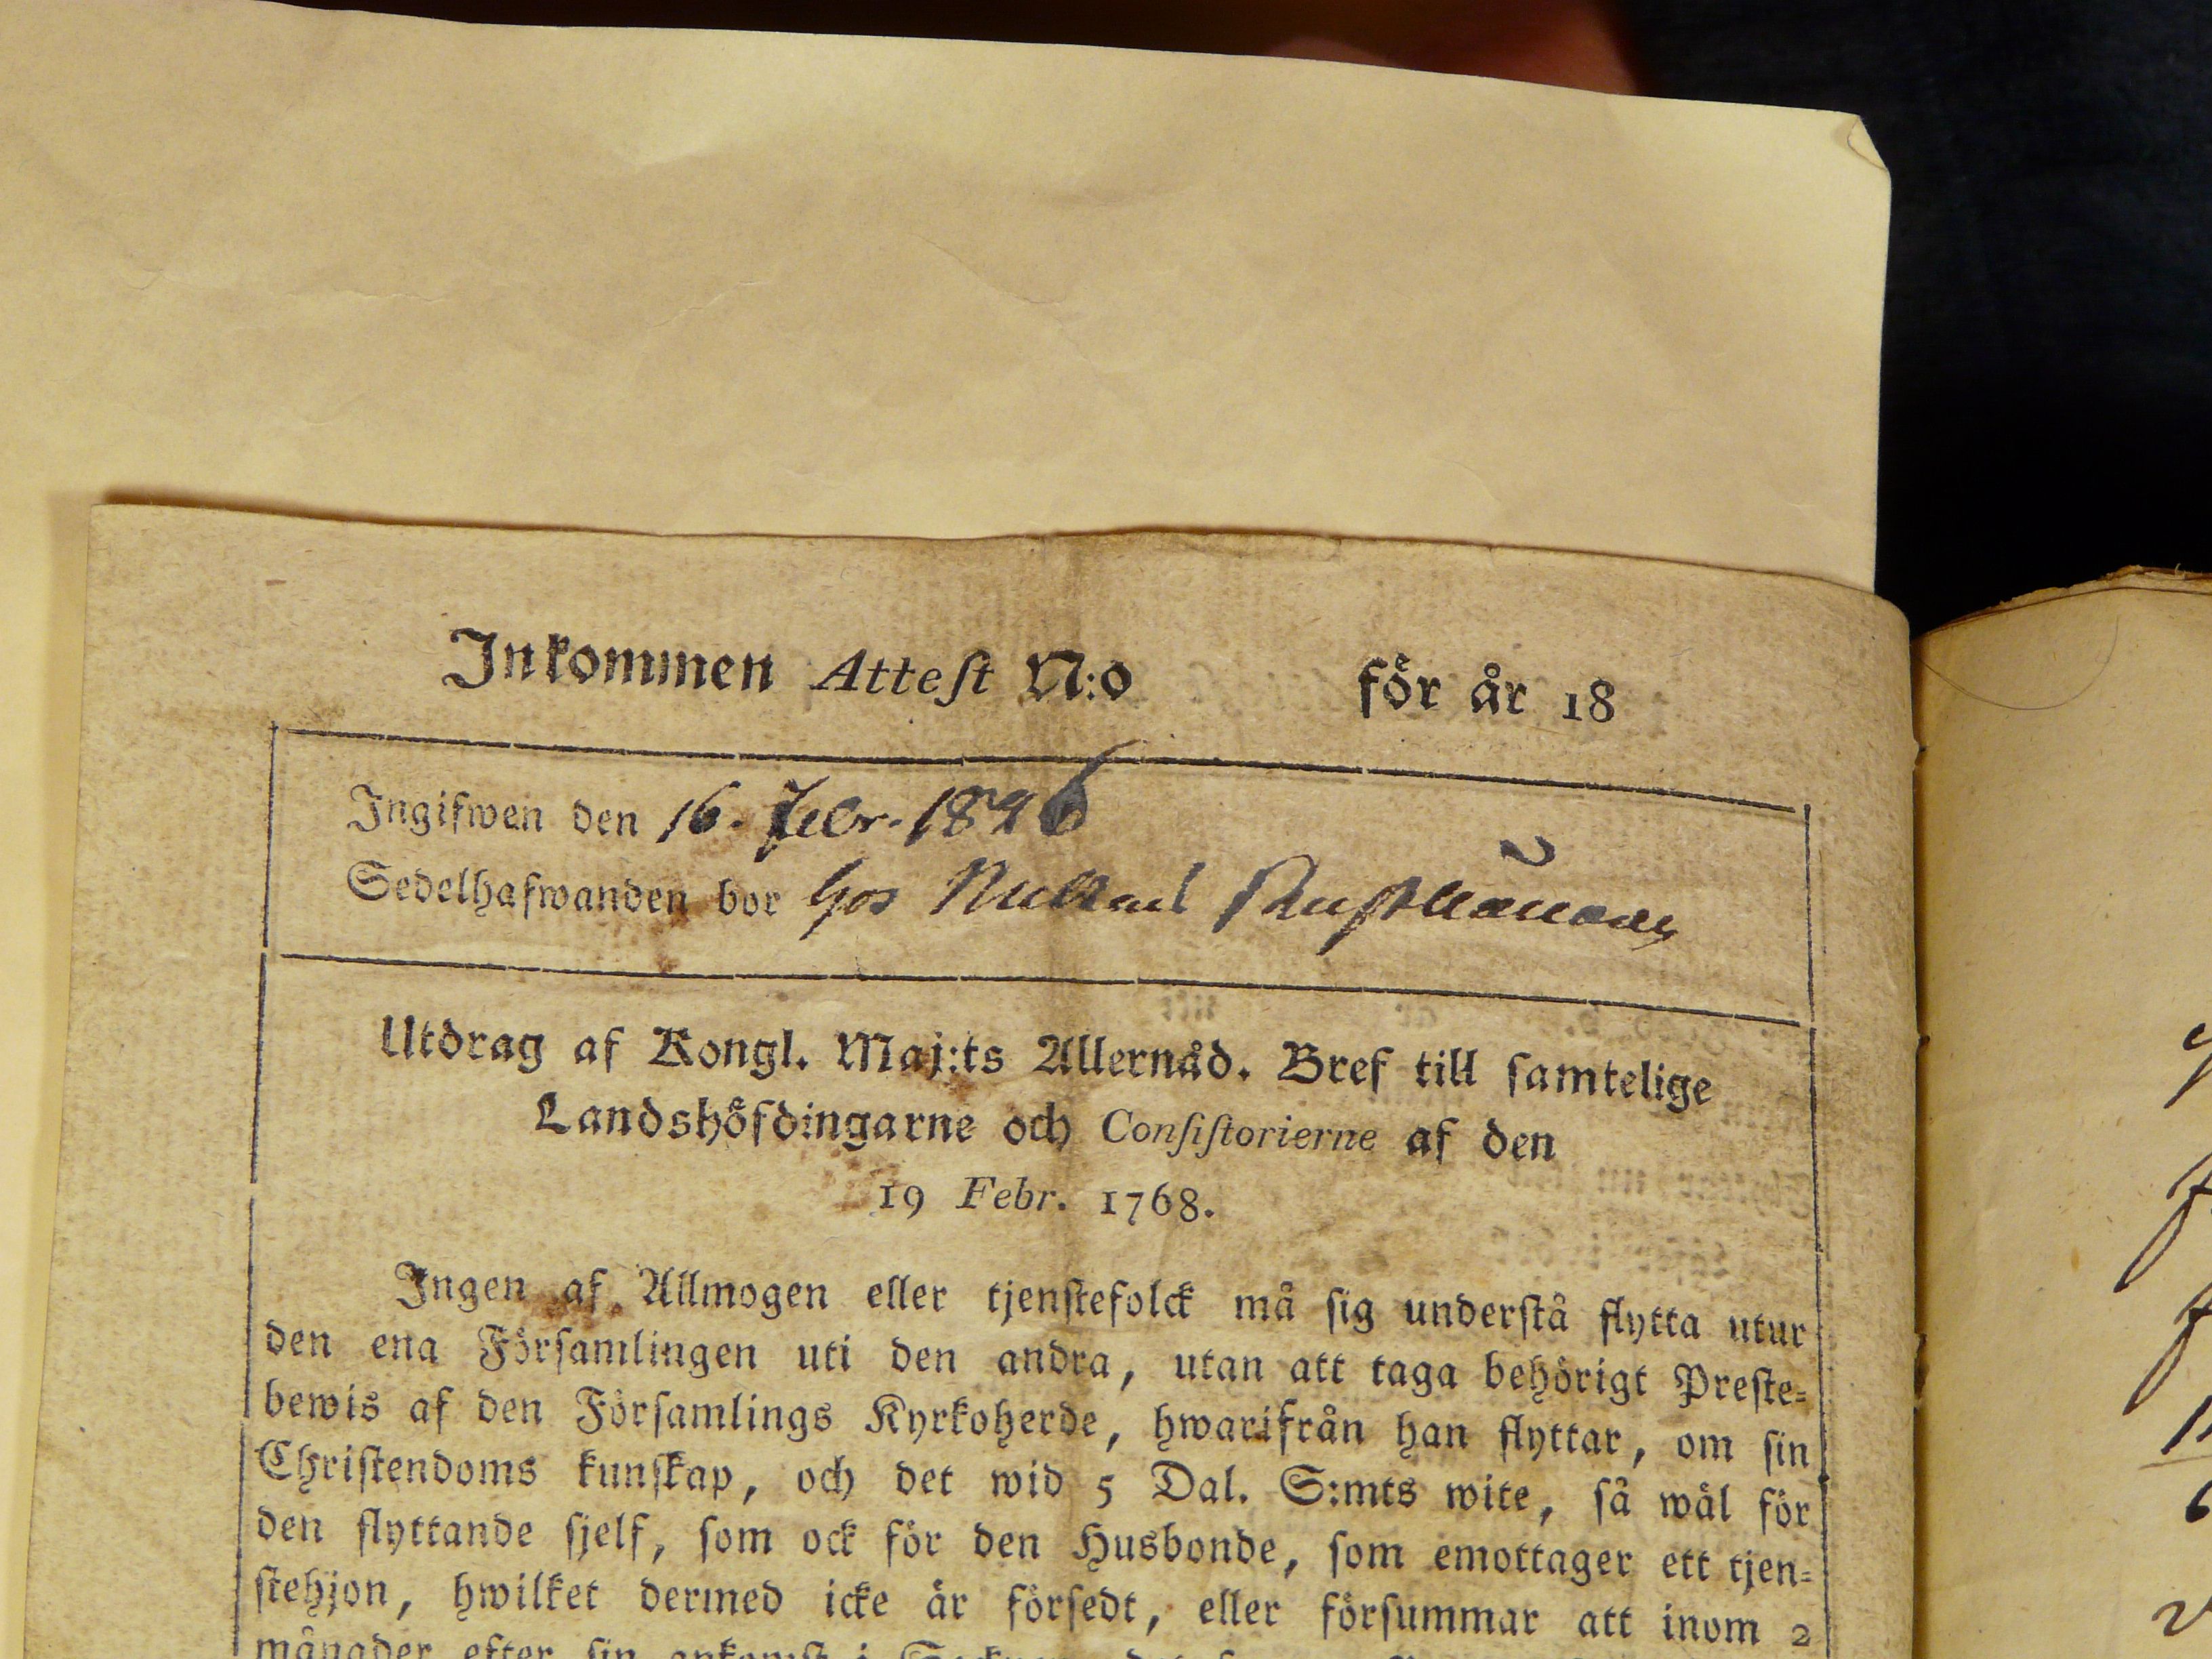 Inkommen Attest N:o för år 18
Ingifwen den 16. Febr. 1826
Sedelhafwanden bor hos
Utdrag af Kongl. Maj:ts Allernåd. Bref till samtelige
Landshöfdingarne och Consistorierne af den
19 Febr. 1768.
Ingen af Allmogen eller tjenstefolck må sig understå flytta utur
den ena Församlingen uti den andra, utan att taga behörigt Preste-
bewis af den Församlings Kyrkoherde, hwarifrån han flyttar, om sin
Christendoms kunskap, och det wid 5 Dal. S:mts wite, så wäl för
den flyttande sjelf, som ock för den Husbonde, som emottager ett tjen-
stehjon, hwilket dermed icke är försedt, eller försummar att inom 2
månader efter sin ankomst i